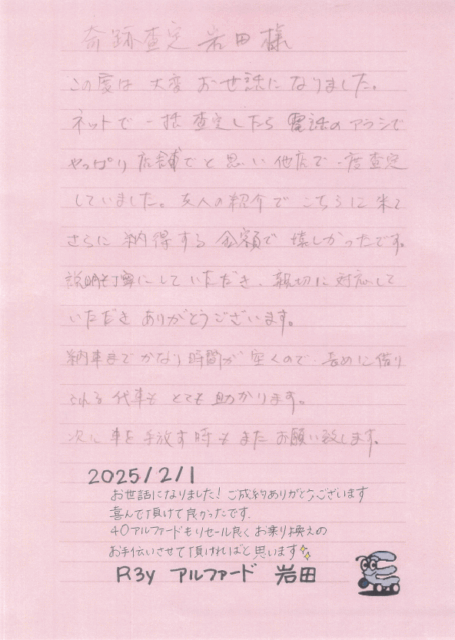 奇跡査定 岩田様
この度は 大変 お世話になりました。
ネットで 一括 査定したら 電話のアラシで
やっぱり 店舗でと 思い 他店で 一度査定
していました。友人の紹介で こちらに 来て
さらに 納得する 金額で 嬉しかったです。
説明も丁寧にして いただき、親切に 対応して
いただき ありがとうございます。
納車まで かなり 時間が 空くので、長めに 借り
られる 代車も とても 助かります。
次に 車を 手放す 時も また お願い致します。
2025/2/1
お世話になりました! ご成約ありがとうございます
喜んで頂けて良かったです。
40アルファードもリセール良くお乗り換えの
お手伝いさせて頂ければと思います
R3y アルファード 岩田